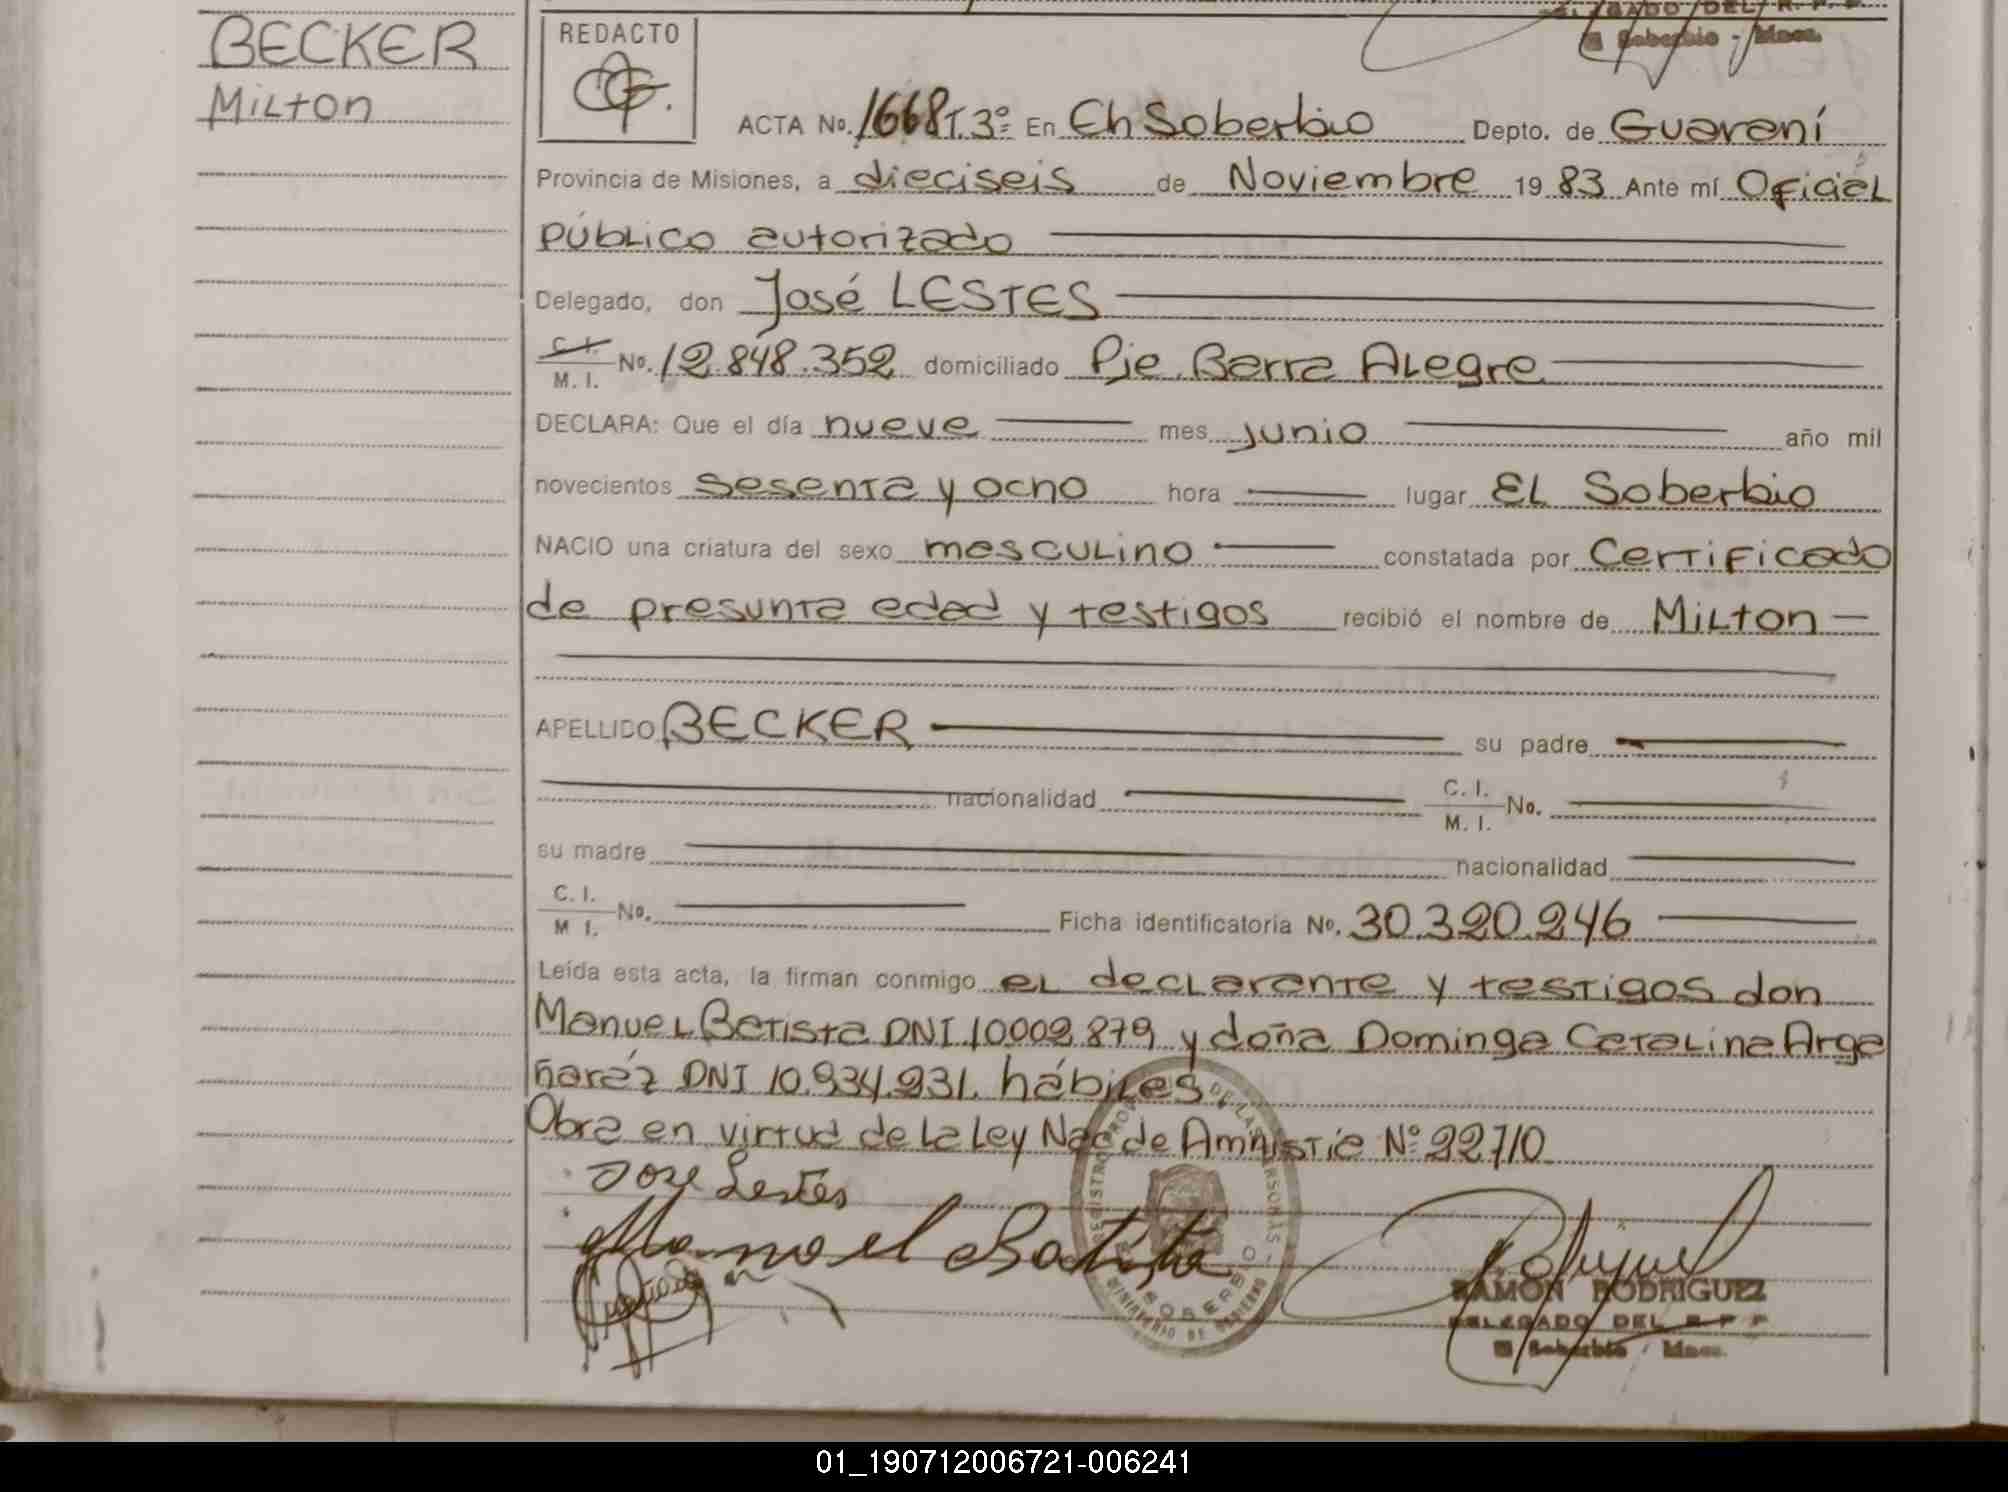 BECKER
Milton
REDACTO
DELEGADO DEL R. P. P.
El Soberbio - Mnes.
ACTA No. 1668 T. 3º En El Soberbio Depto. de Guaraní
Provincia de Misiones, a dieciseis de Noviembre 19 83 Ante mí Oficial
público autorizado
Delegado, don José LESTES
C. I. / M. I. No. 12.848.352 domiciliado Pje. Barra Alegre
DECLARA: Que el día nueve mes junio año mil
novecientos sesenta y ocho hora lugar El Soberbio
NACIO una criatura del sexo masculino constatada por Certificado
de presunta edad y testigos recibió el nombre de Milton
APELLIDO BECKER su padre
nacionalidad C. I. / M. I. No.
su madre nacionalidad
C. I. / M I. No. Ficha identificatoria No. 30.320.246
Leída esta acta, la firman conmigo el declarante y testigos don
Manuel Batista DNI 10002879 y doña Dominga Catalina Arga
ñaráz DNI 10.934.931. hábiles
Obra en virtud de la Ley Nac de Amnistía Nº 22710
Jose Lestes
Manoel Batista
RAMON RODRIGUEZ
DELEGADO DEL R P P
El Soberbio - Mnes.
REGISTRO PROV DE LAS PERSONAS
SOBERBIO
MINISTERIO DE GOBIERNO
01_190712006721-006241